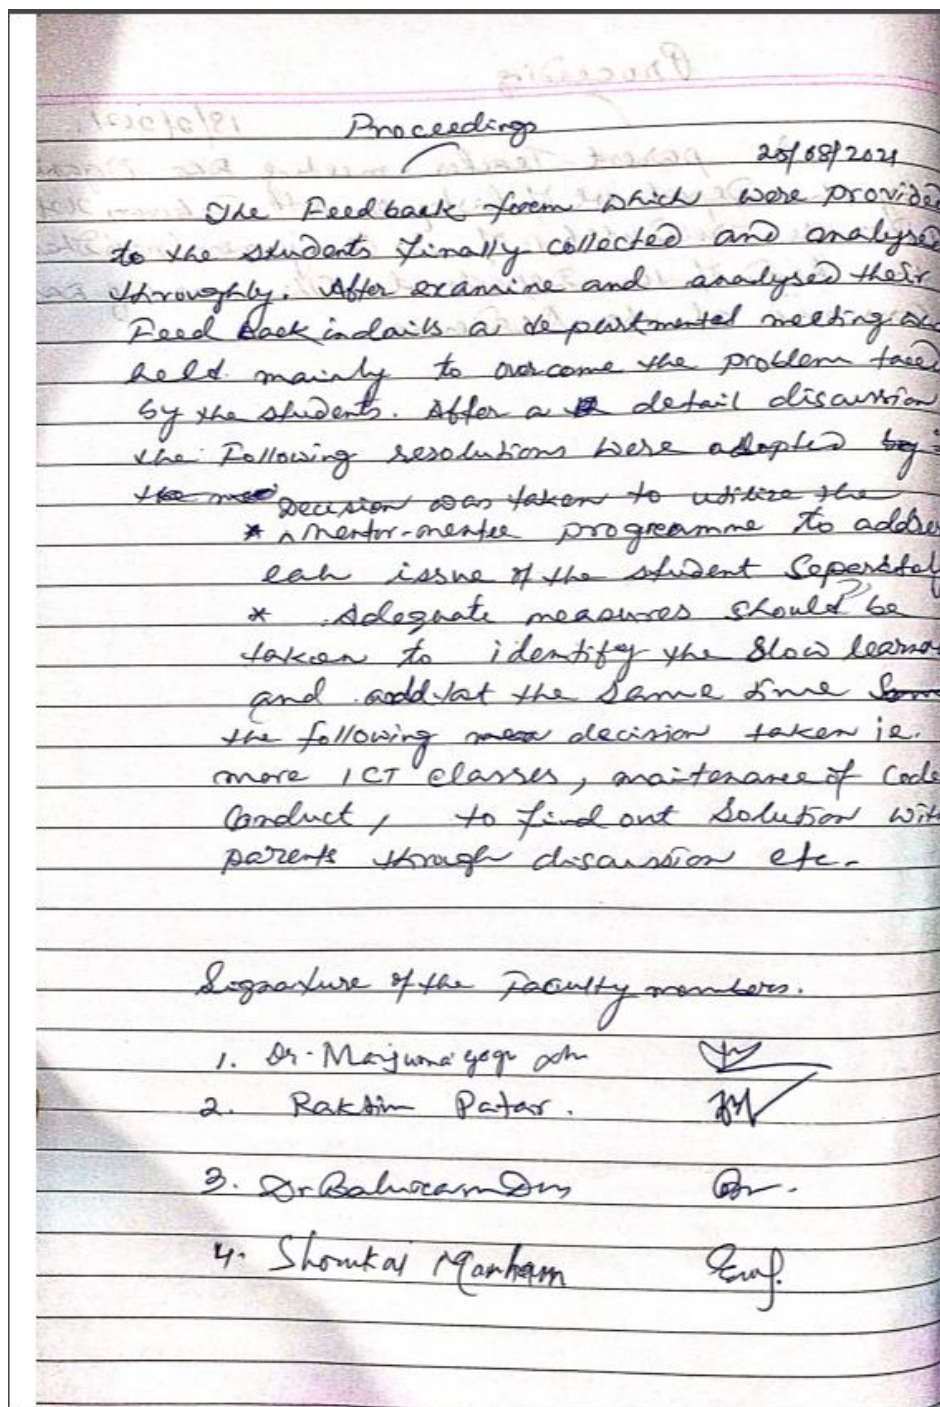 Proceedings
25/08/2021
The Feedback form which were provided
to the students finally collected and analysed
throughly. After examine and analysed their
Feed back indails a departmental meeting
held mainly to overcome the problem faced
by the students. After a detail discussion
the Following resolutions were adopted by
the
Decision was taken to utilize the
* mentor-mentee programme to addre
eah issue of the student Seperatel
* Adequate measures should be
taken to identify the slow learne
and add at the same time
the following decision taken ie.
more ICT classes, maintenance of Code
Conduct, to find out Solution with
parents through discussion etc.
Signature of the Faculty members.
1. Dr.
2. Raktim Patar.
3. Dr Baluram Das
4.